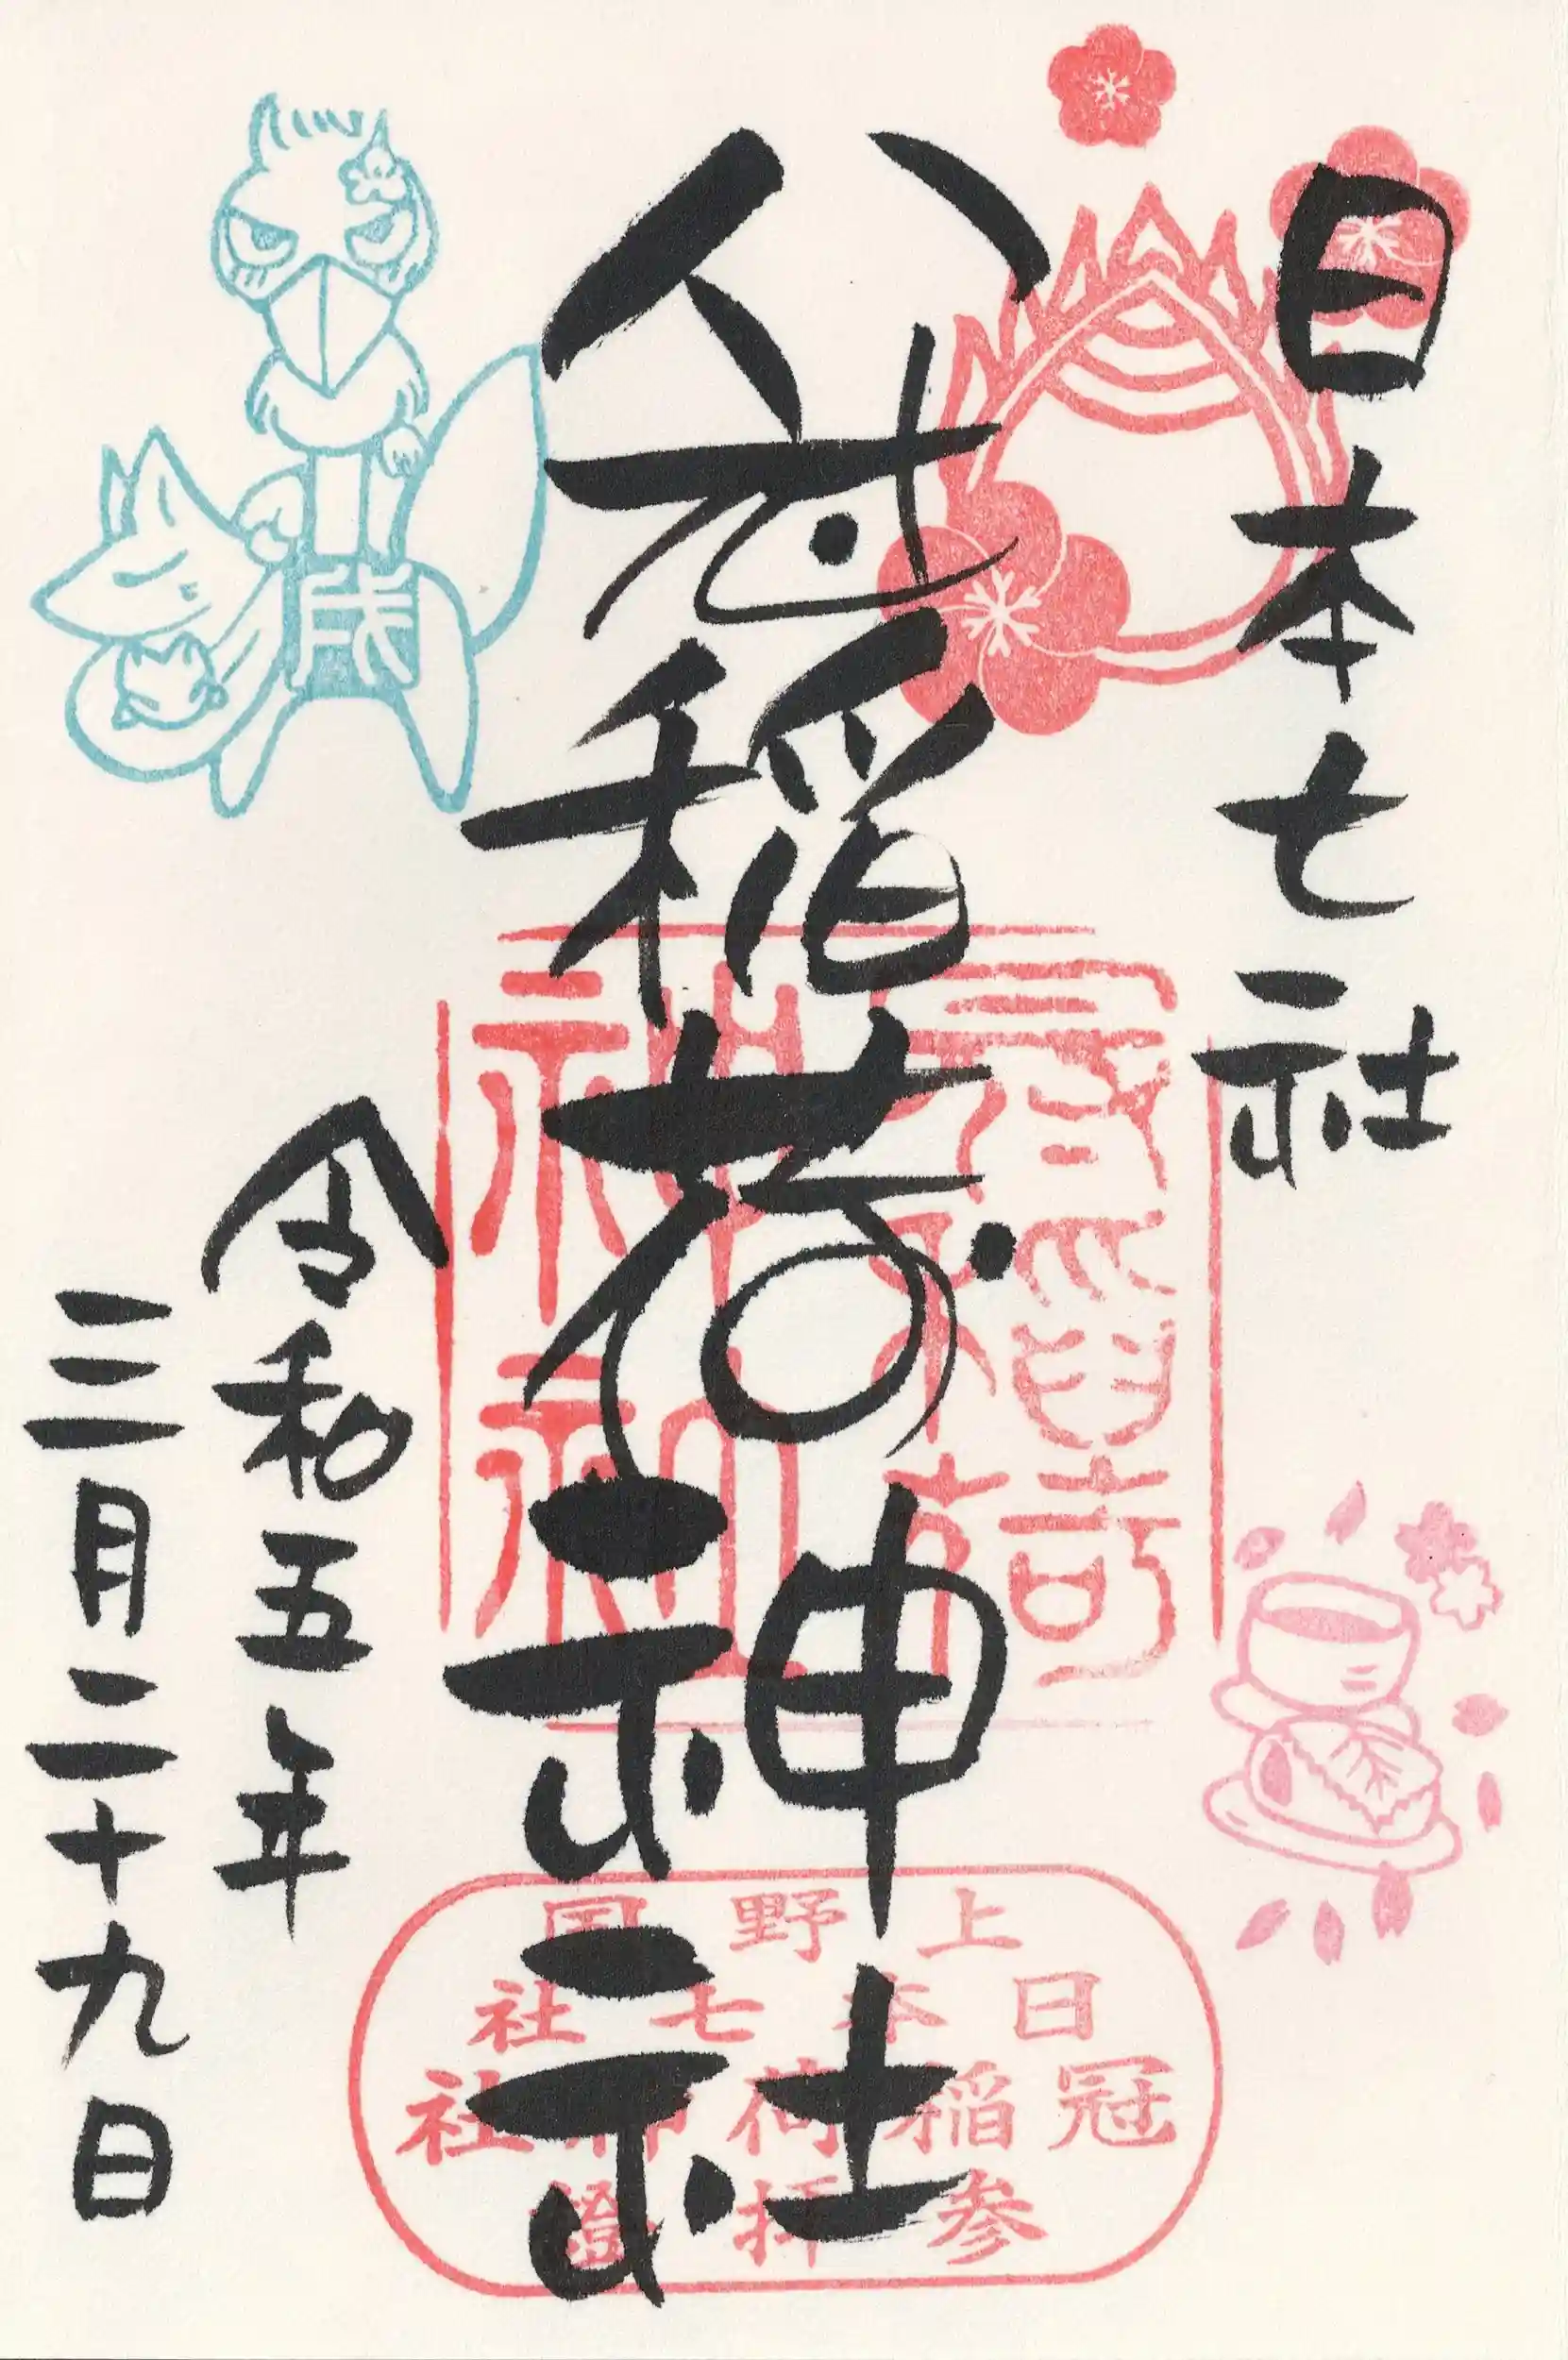 日本七社
冠稲荷神社
令和五年
三月二十九日
上野国
日本七社
冠稲荷神社
参拝